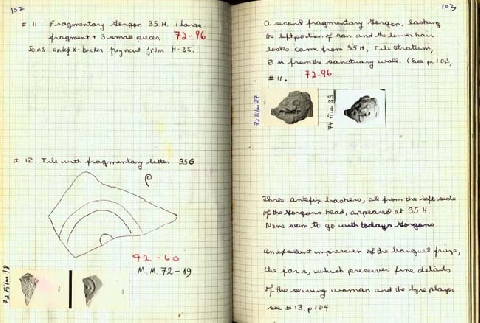 102
# 11 Fragmentary Gorgon 35 H, 1 large
fragment + 3 small ones 72-96
# 12 Tile with fragmentary letter 35G
72-60
M.M. 72-19
103
A second fragmentary Gorgon, lacking
the left portion of and the lower hair
locks came from 35H, Tile stratum,
8 m from the sanctuary wall. (See p. 102,
# 11. 72-96
Three antefix backers, all from the left side
of the Gorgons head, appeared at 35 H
None seem to go with todays Gorgons
An excellent impression of the banquet frieze,
the , which preserves fine details
of the serving woman and the lyre player
see # 13, p. 104